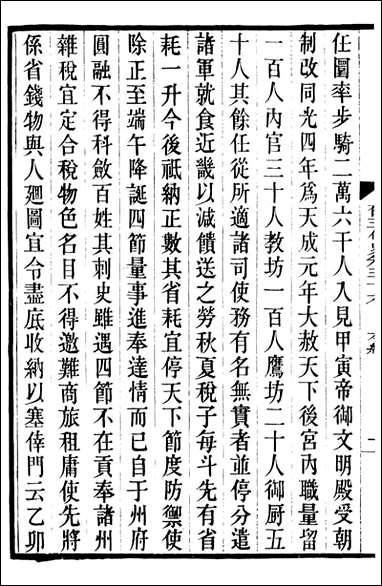 任圜率步騎二萬六千人入見甲寅帝御文明殿受朝
制改同光四年爲天成元年大赦天下後宮內職量留
一百人內官三十人教坊一百人鷹坊二十人御厨五
十人其餘任從所適諸司使務有名無實者並停分遣
諸軍就食近畿以減饋送之勞秋夏稅子每斗先有省
耗一升今後祗納正數其省耗宜停天下節度防禦使
除正至端午降誕四節量事進奉達情而已自于州府
圓融不得科斂百姓其刺史雖遇四節不在貢奉諸州
雜稅宜定合稅物色名目不得邀難商旅租庸使先將
係省錢物與人廻圖宜令盡底收納以塞倖門云乙卯